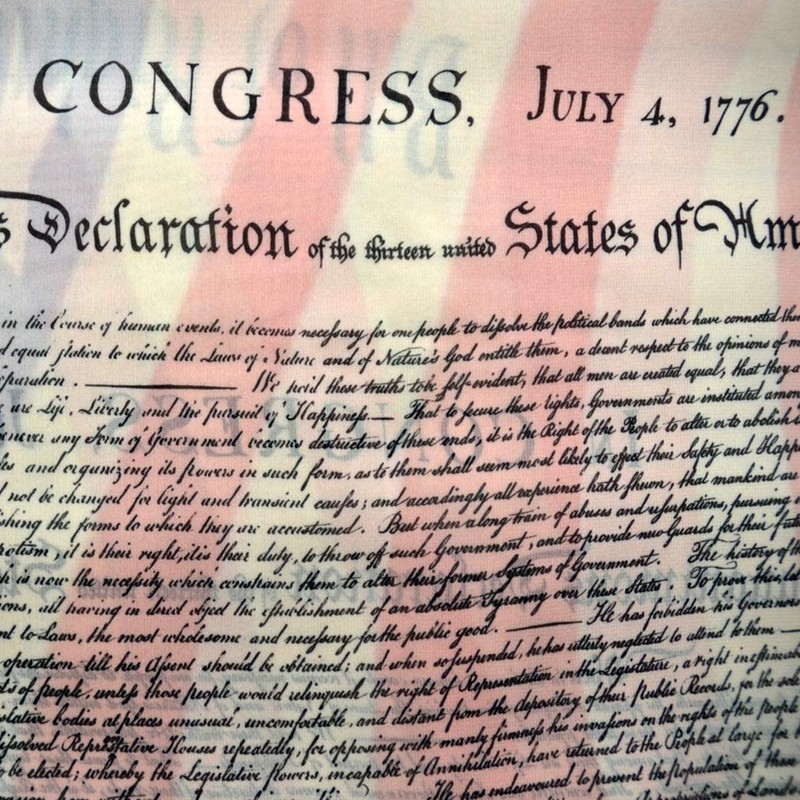 CONGRESS, JULY 4, 1776.
s Declaration of the thirteen united States of Am
in the Course of human events, it becomes necessary for one people to dissolve the political bands which have connected them
d equal station to which the Laws of Nature and of Nature's God entitle them, a decent respect to the opinions of m
eparation. — We hold these truths to be self-evident, that all men are created equal, that they a
e are Life, Liberty and the pursuit of Happiness. — That to secure these rights, Governments are instituted amon
henever any Form of Government becomes destructive of these ends, it is the Right of the People to alter or to abolish i
les and organizing its powers in such form, as to them shall seem most likely to effect their Safety and Happ
d not be changed for light and transient causes; and accordingly all experience hath shewn, that mankind are
ishing the forms to which they are accustomed. But when a long train of abuses and usurpations, pursuing
potism, it is their right, it is their duty, to throw off such Government, and to provide new Guards for their futu
h is now the necessity which constrains them to alter their former Systems of Government. The history of th
ions, all having in direct object the establishment of an absolute Tyranny over these States. To prove this, let
nt to Laws, the most wholesome and necessary for the public good. — He has forbidden his Governors
operation till his Assent should be obtained; and when so suspended, he has utterly neglected to attend to them —
ts of people, unless those people would relinquish the right of Representation in the Legislature, a right inestimab
islative bodies at places unusual, uncomfortable, and distant from the depository of their Public Records, for the sole
dissolved Representative Houses repeatedly, for opposing with manly firmness his invasions on the rights of the people
o be elected; whereby the Legislative powers, incapable of Annihilation, have returned to the People at large for t
He has endeavoured to prevent the population of these